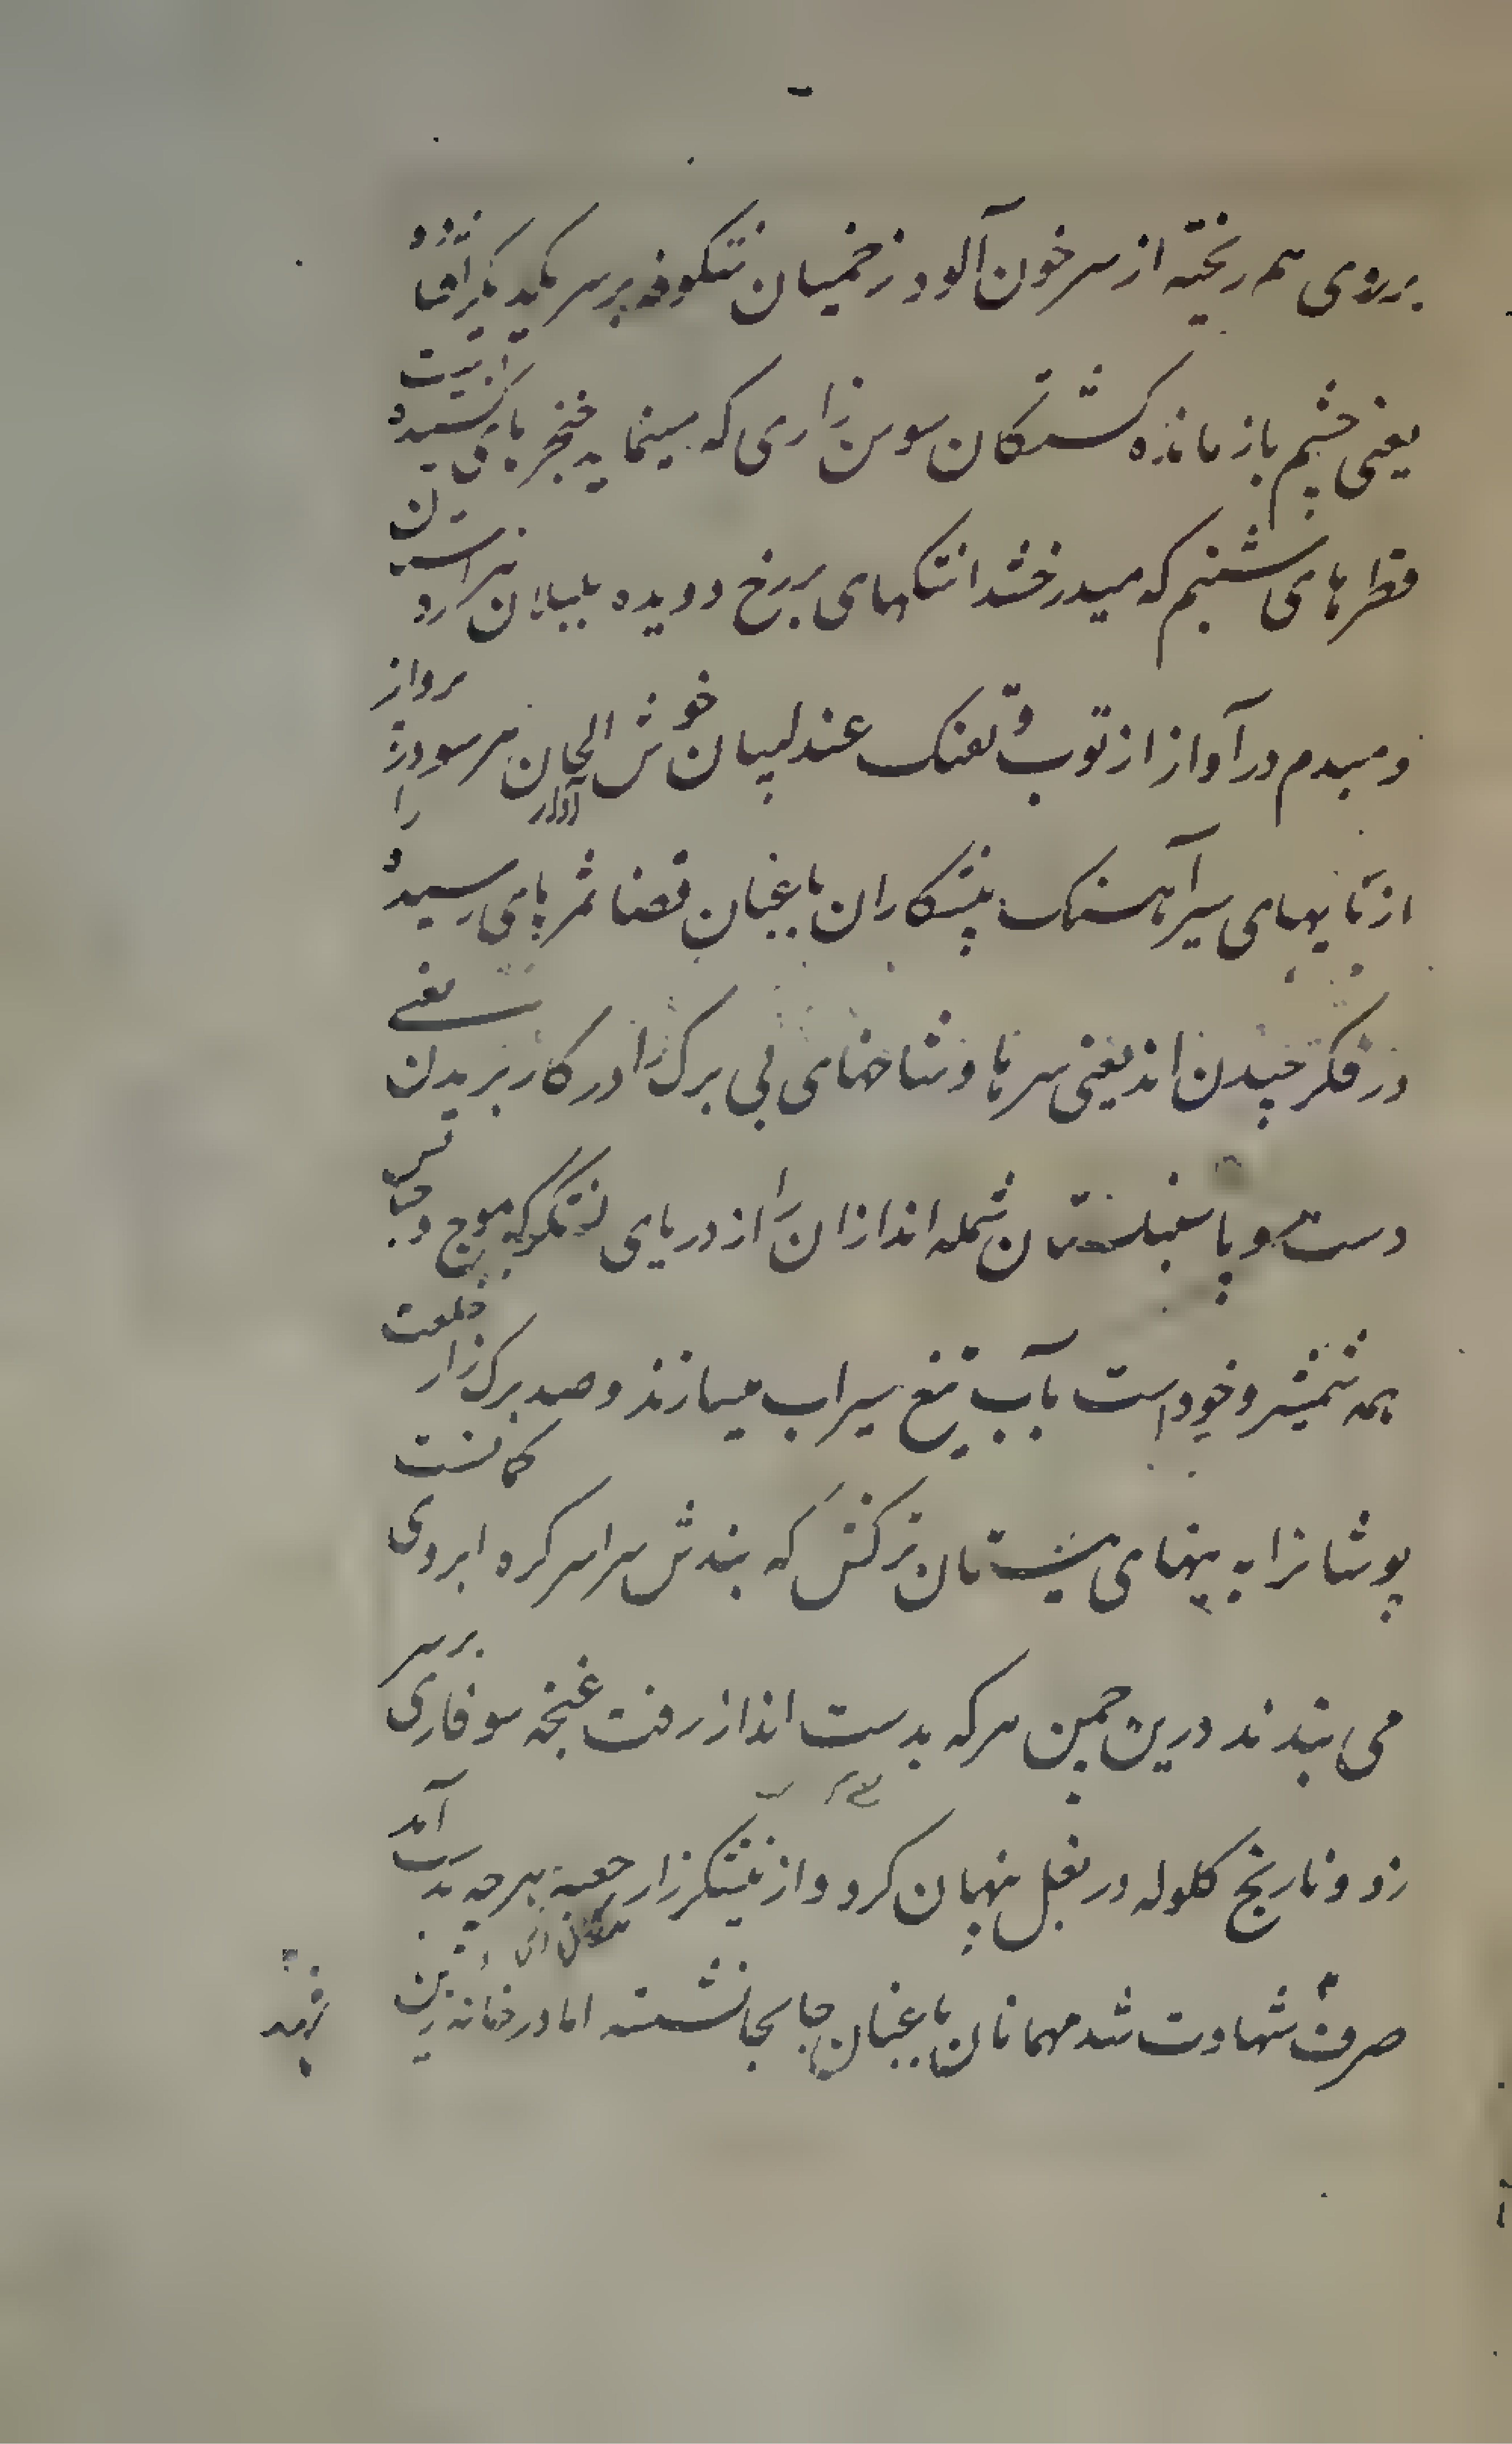 بر روی هم ریخته از سر خون آلود زخمیان شکوفه بر سر یکدیگر افتاده و
یعنی چشم باز مانده کشتگان سوسن زاری که مینماید خنجرهای کشیده است
قطرهای شبنم که میدرخشد اشکهای بر رخ دویده بلبلان تیر
و مبدم در آواز از توپ و تفنک عندلیبان خوش الحان هر سو در پرواز
از تانیهای سیر آهنک پیشکاران باغبان قضا ثمرهای رسیده را
در فکر چیدن اند یعنی سرها و شاخهای بی برک را در کار بریدن یعنی
دست و پا سنبلستان شمله اندازان را از دریای لشکر که موج و حبابش
همه شمشیر و خود است بآب تیغ سیراب میسازند و صد برک زار خلعت
پوشانرا به پنهای نیستان ترکش که بندش سراسر کره ابروی کمانست
می بندند درین چمن هر که بدست انداز رفت غنچه سوفاری بر سر
زد و نارنج کلوله در بغل پنهان کرد و از نیشکرزار جعبه هر چه بدست آمد
صرف شهادت شد مهمانان باغبان جابجا نشسته اما در خانه زین